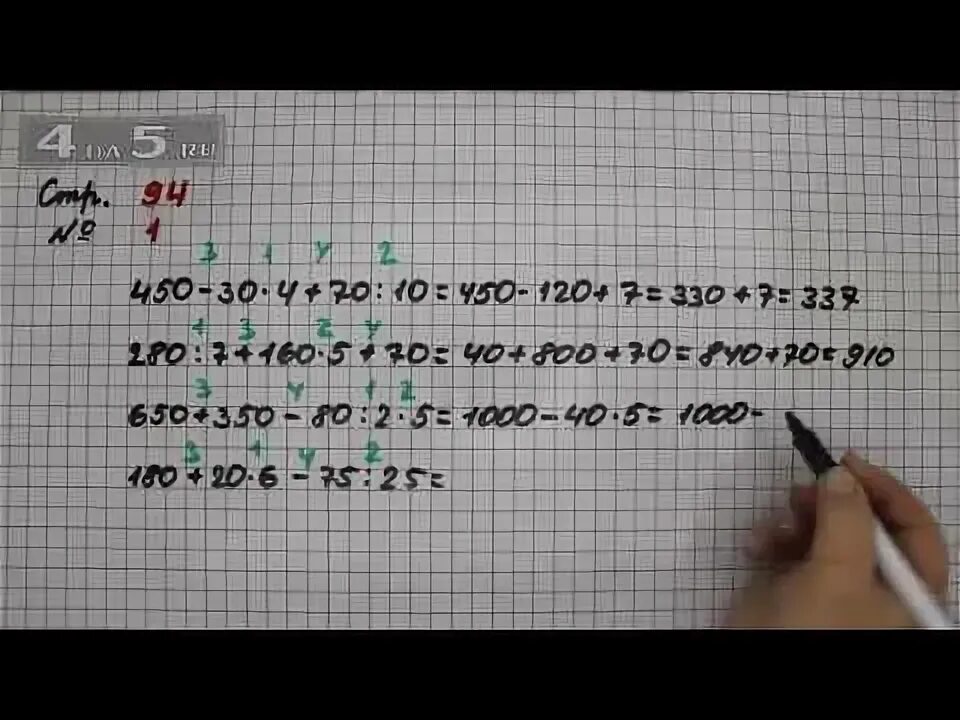 Стр. 94
№ 1
3 1 4 2
450-30·4+70:10=450-120+7=330+7=337
1 3 2 4
280:7+160·5+70=40+800+70=840+70=910
3 4 1 2
650+350-80:2·5=1000-40·5=1000-
3 1 4 2
180+20·6-75:25=